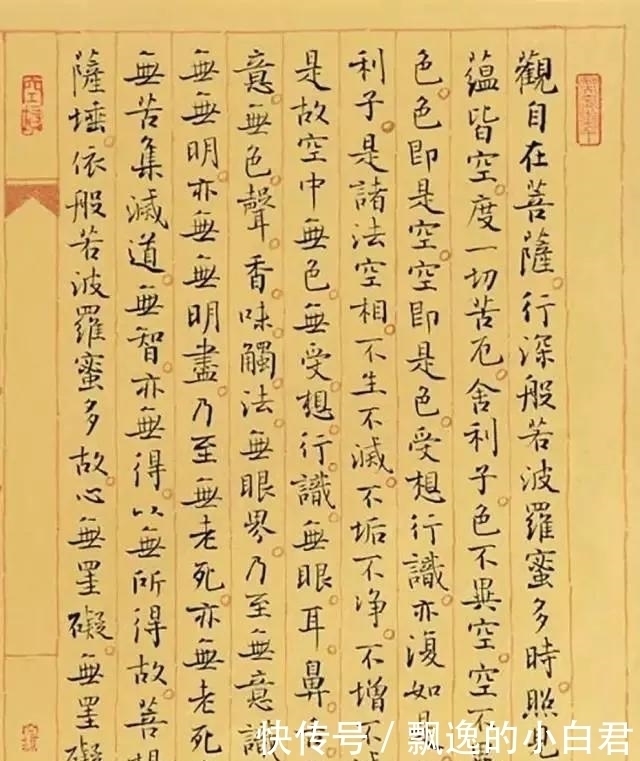 觀自在菩薩行深般若波羅蜜多時照見
蘊皆空度一切苦厄舍利子色不異空空不
色色即是空空即是色受想行識亦復如是
利子是諸法空相不生不滅不垢不净不增不
是故空中無色無受想行識無眼耳鼻舌
意無色聲香味觸法無眼界乃至無意識
無無明亦無無明盡乃至無老死亦無老死
無苦集滅道無智亦無得以無所得故菩提
薩埵依般若波羅蜜多故心無罣礙無罣礙
快传号 / 飘逸的小白君